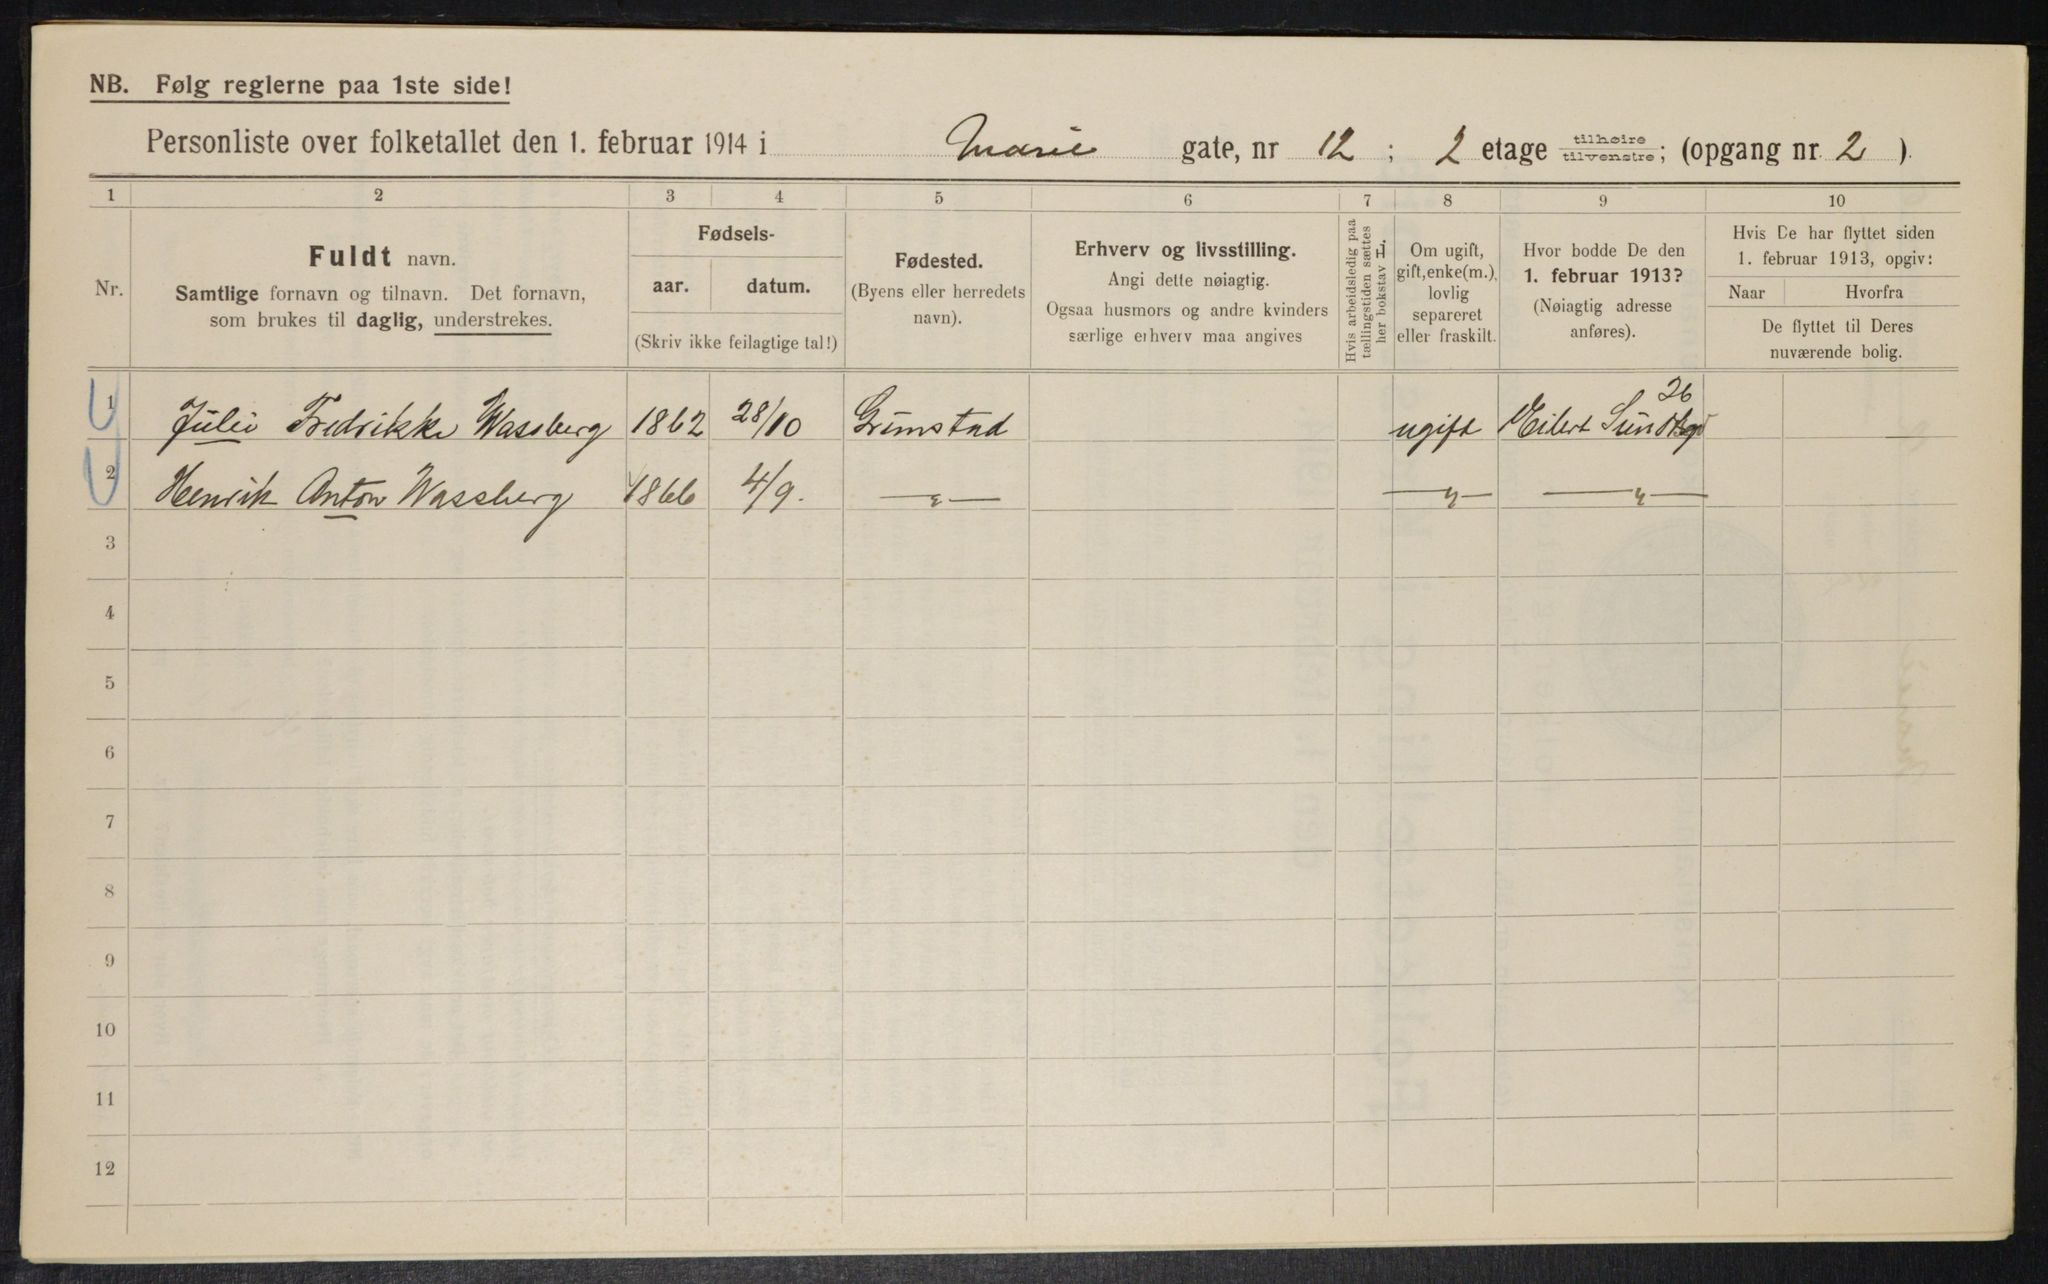 NB. Følg reglerne paa 1ste side!
Personliste over folketallet den 1. februar 1914 i Marie gate, nr 12 ; 2 etage tilhøire/tilvenstre; (opgang nr. 2 ).
1 2 3 4 5 6 7 8 9 10
Nr.
Fuldt navn.
Samtlige fornavn og tilnavn. Det fornavn,
som brukes til daglig, understrekes.
Fødsels-
aar. datum.
(Skriv ikke feilagtige tal!)
Fødested.
(Byens eller herredets
navn).
Erhverv og livsstilling.
Angi dette nøiagtig.
Ogsaa husmors og andre kvinders
særlige erhverv maa angives
Hvis arbeidsledig paa
tællingstiden sættes
her bokstav L.
Om ugift,
gift, enke(m.),
lovlig
separeret
eller fraskilt.
Hvor bodde De den
1. februar 1913?
(Nøiagtig adresse
anføres).
Hvis De har flyttet siden
1. februar 1913, opgiv:
Naar Hvorfra
De flyttet til Deres
nuværende bolig.
1 Julie Fredrikke Wassberg 1862 28/10 Grimstad ugift Eilert Sundtsgt 26 —
2 Henrik Anton Wassberg 1866 4/9. —„— —„— —„—
3
4
5
6
7
8
9
10
11
12